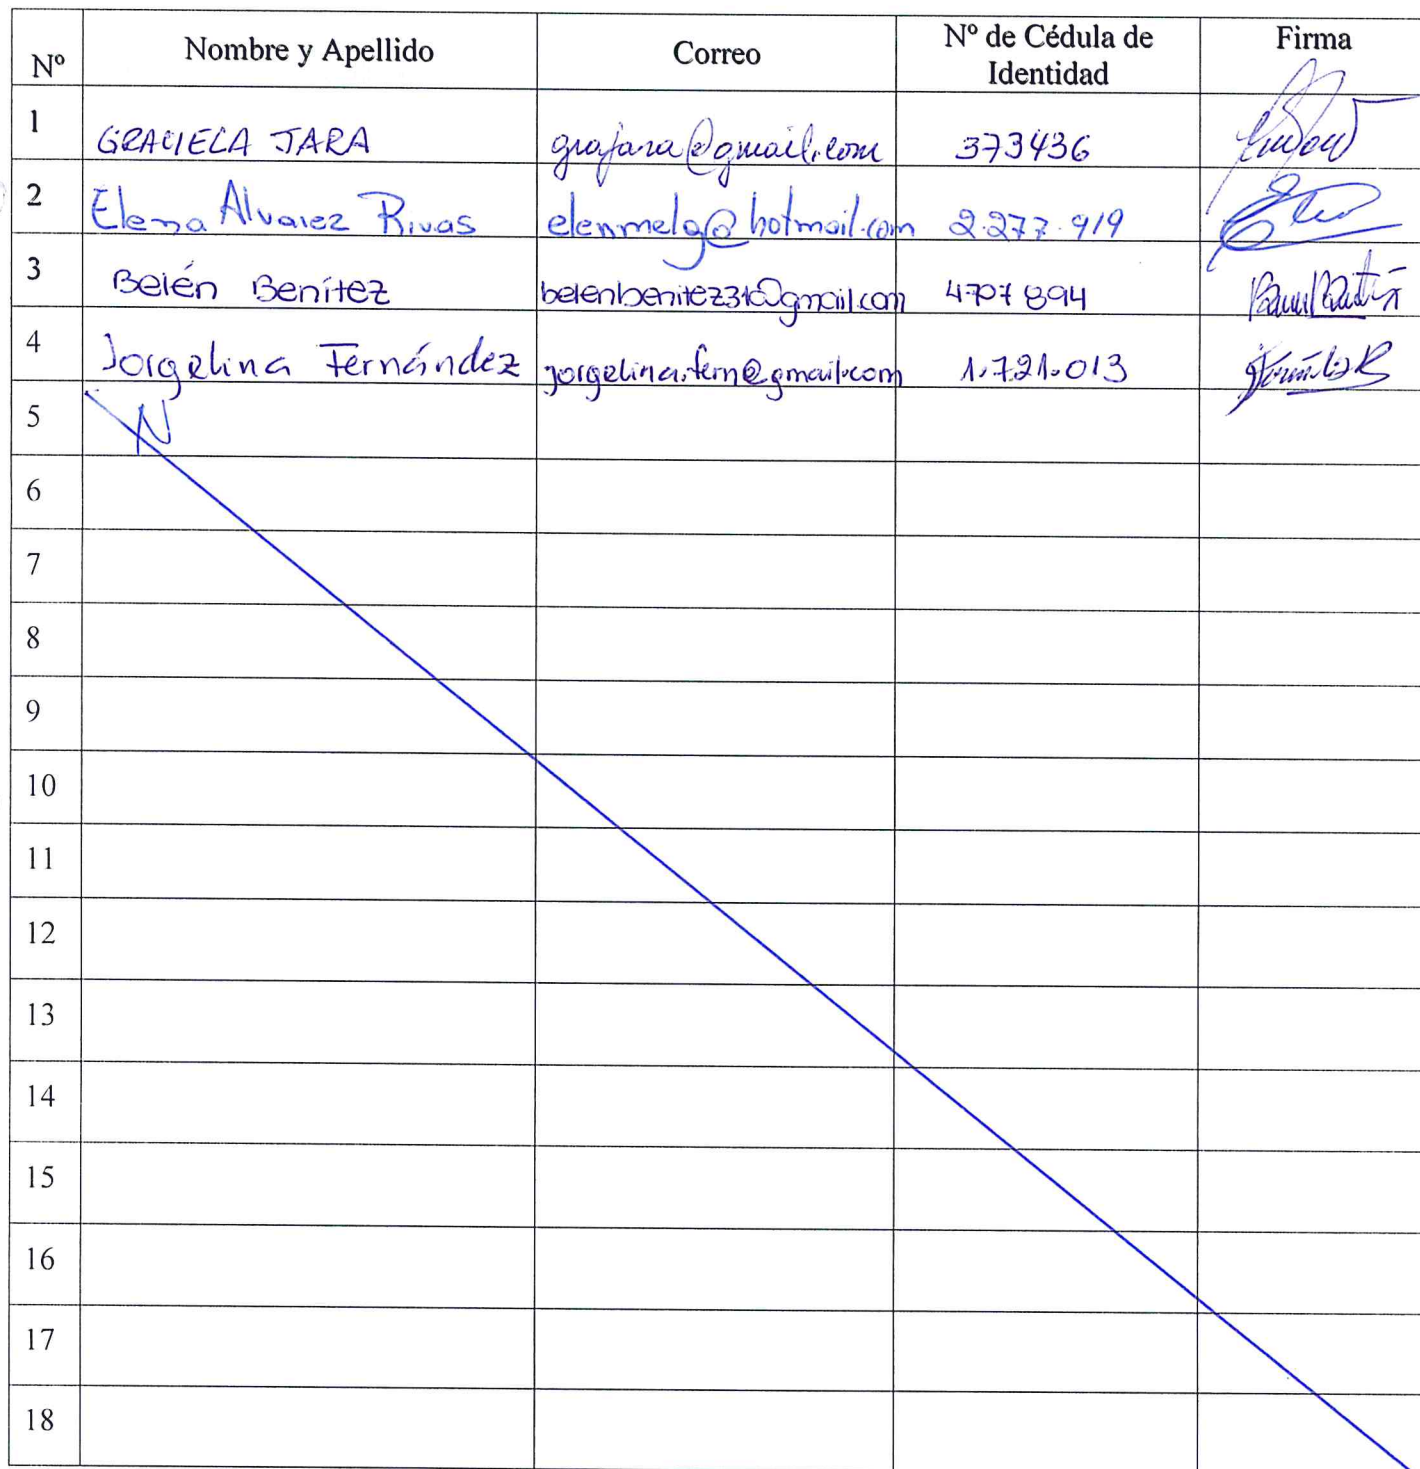 Nº Nombre y Apellido Correo Nº de Cédula de Identidad Firma
1 GRACIELA JARA grajara@gmail.com 373436
2 Elena Alvarez Rivas elenmelg@hotmail.com 2.277.919
3 Belén Benítez belenbenitez310@gmail.com 4707894
4 Jorgelina Fernández jorgelina.fern@gmail.com 1.721.013
5 N
6
7
8
9
10
11
12
13
14
15
16
17
18